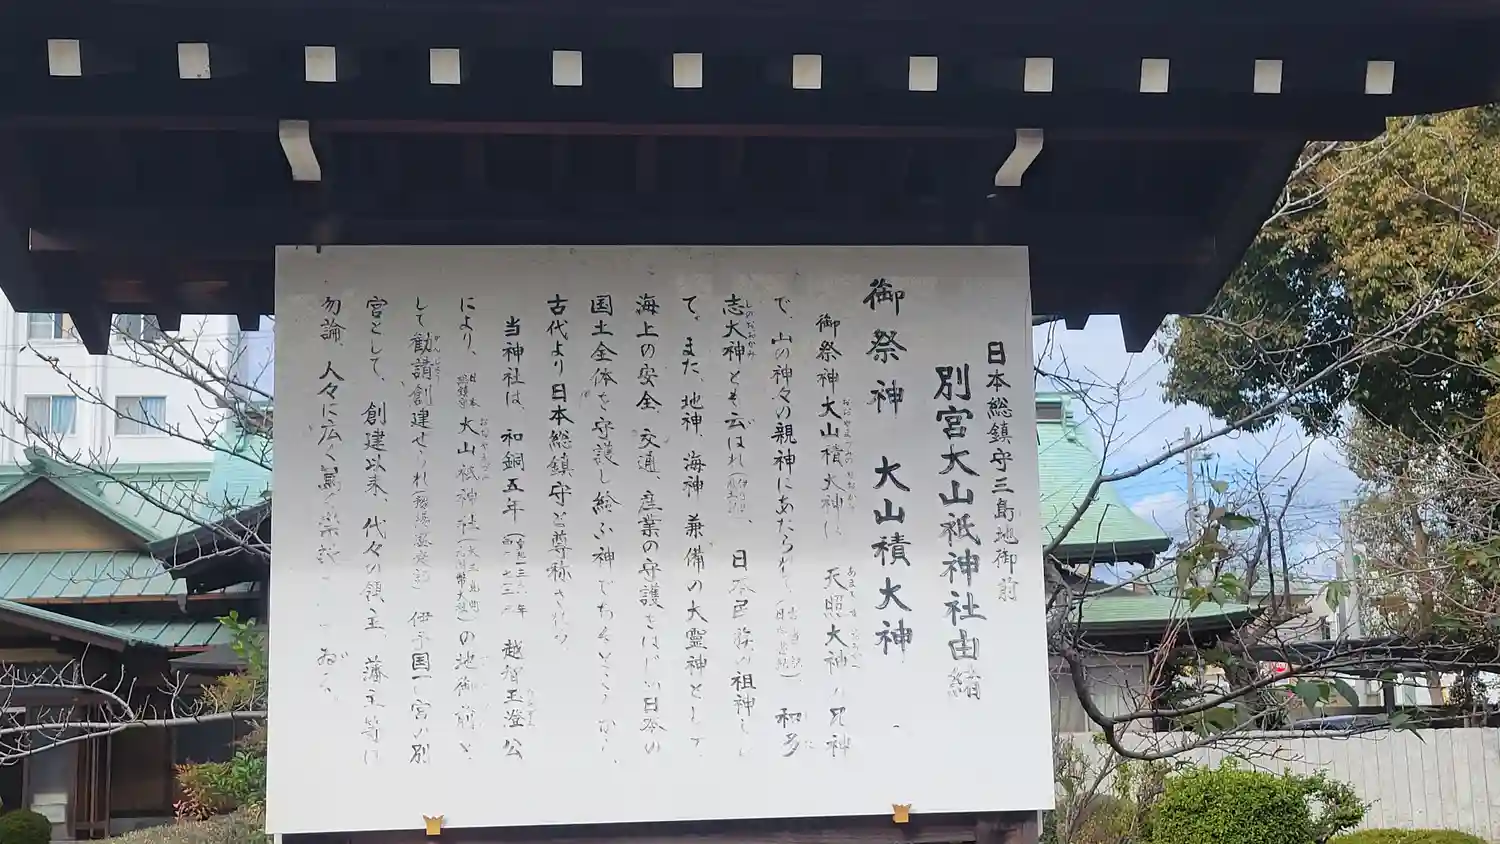 日本総鎮守三島地御前
別宮大山祇神社由緒
御祭神 大山積大神
御祭神大山積大神は、天照大神の兄神
で、山の神々の親神にあたられ 和多
志大神とも云はれ 日本民族の祖神とし
て、また、地神、海神、兼備の大霊神として
海上の安全、交通、産業の守護をはじめ日本の
国土全体を守護し給ふ神で
古代より日本総鎮守と尊称され
当神社は、和銅五年 越智玉澄公
により、大山祇神社 の地御前と
して勧請創建せられ 伊予国一宮の別
宮として、創建以来、代々の領主、藩主等は
勿論、人々に広く